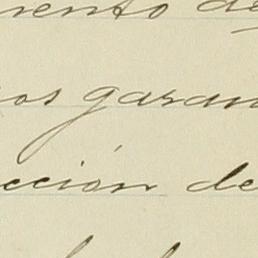 mento de
os garan
cción de